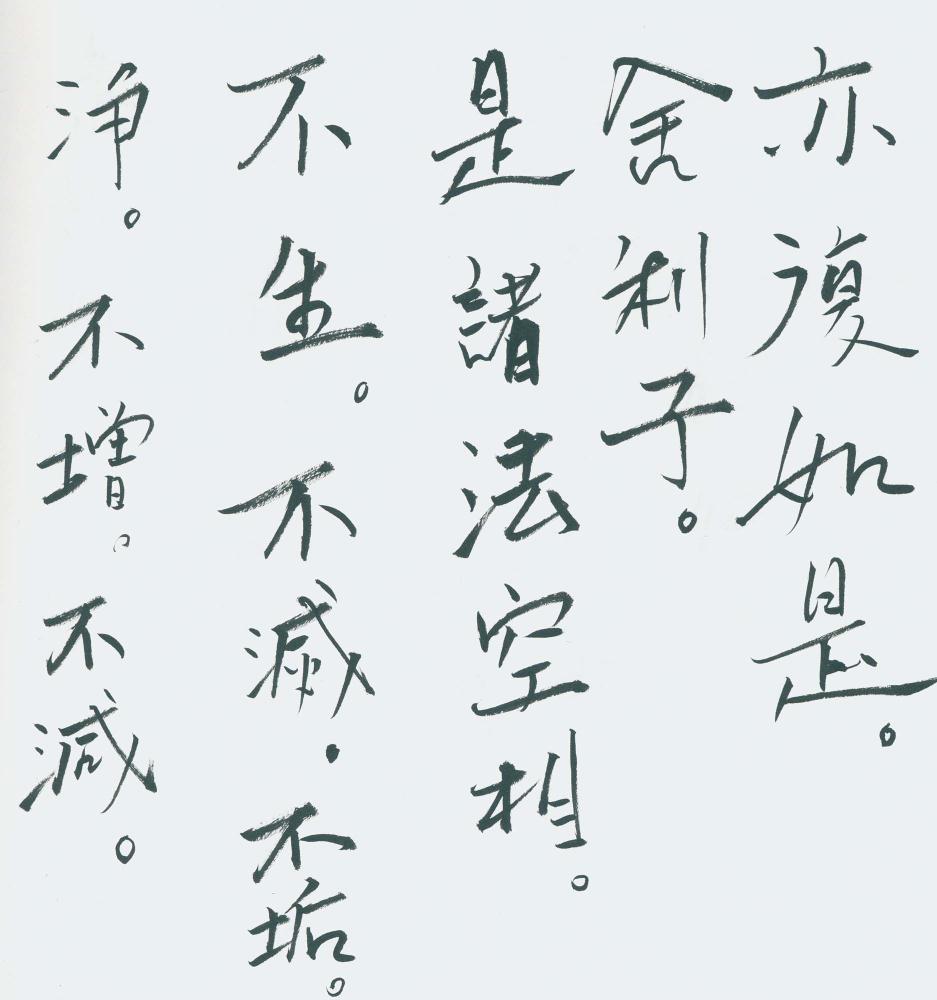 亦復如是。
舍利子。
是諸法空相。
不生。不滅。不垢。
浄。不增。不減。